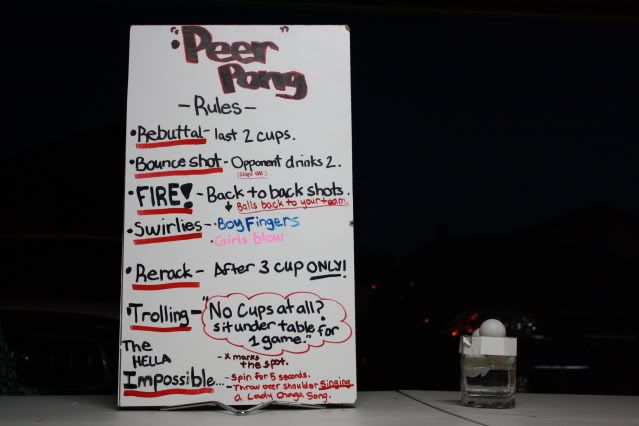 "Peer"
Pong
- Rules -
• Rebuttal - last 2 cups.
• Bounce shot - Opponent drinks 2.
(slaps ok)
• FIRE! - Back to back shots.
↓ Balls back to your team.
• Swirlies - • Boy Fingers
• Girls blow
• Rerack - After 3 cup ONLY!
• Trolling - "No Cups at all?
sit under table for
1 game."
The
HELLA
Impossible...
- X marks
the spot.
- Spin for 5 seconds.
- Throw over shoulder singing
a Lady Chaga Song.